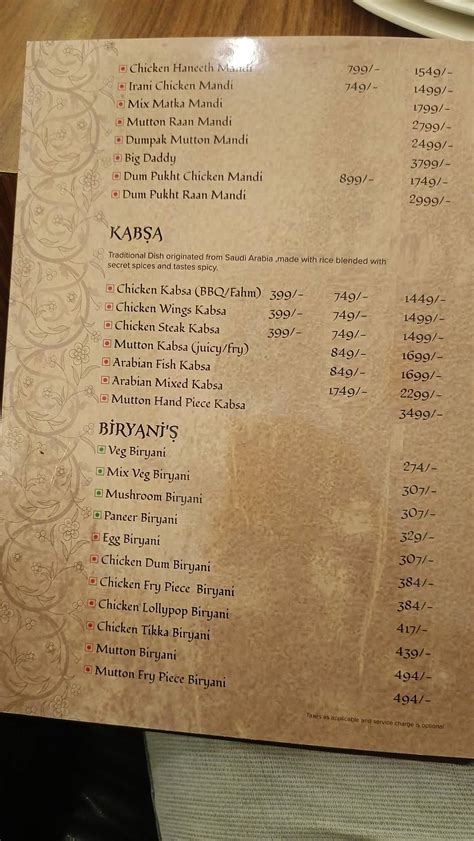 Chicken Haneeth Mandi 799/- 1549/-
Irani Chicken Mandi 749/- 1499/-
Mix Matka Mandi 1799/-
Mutton Raan Mandi 2799/-
Dumpak Mutton Mandi 2499/-
Big Daddy 3799/-
Dum Pukht Chicken Mandi 899/- 1749/-
Dum Pukht Raan Mandi 2999/-
KABṢA
Traditional Dish originated from Saudi Arabia ,made with rice blended with
secret spices and tastes spicy.
Chicken Kabsa (BBQ/Fahm) 399/- 749/- 1449/-
Chicken Wings Kabsa 399/- 749/- 1499/-
Chicken Steak Kabsa 399/- 749/- 1499/-
Mutton Kabsa (juicy/fry) 849/- 1699/-
Arabian Fish Kabsa 849/- 1699/-
Arabian Mixed Kabsa 1749/- 2299/-
Mutton Hand Piece Kabsa 3499/-
BİRYANİ'Ṣ
Veg Biryani 274/-
Mix Veg Biryani 307/-
Mushroom Biryani 307/-
Paneer Biryani 329/-
Egg Biryani 307/-
Chicken Dum Biryani 384/-
Chicken Fry Piece Biryani 384/-
Chicken Lollypop Biryani 417/-
Chicken Tikka Biryani 439/-
Mutton Biryani 494/-
Mutton Fry Piece Biryani 494/-
Taxes as applicable and service charge is optional